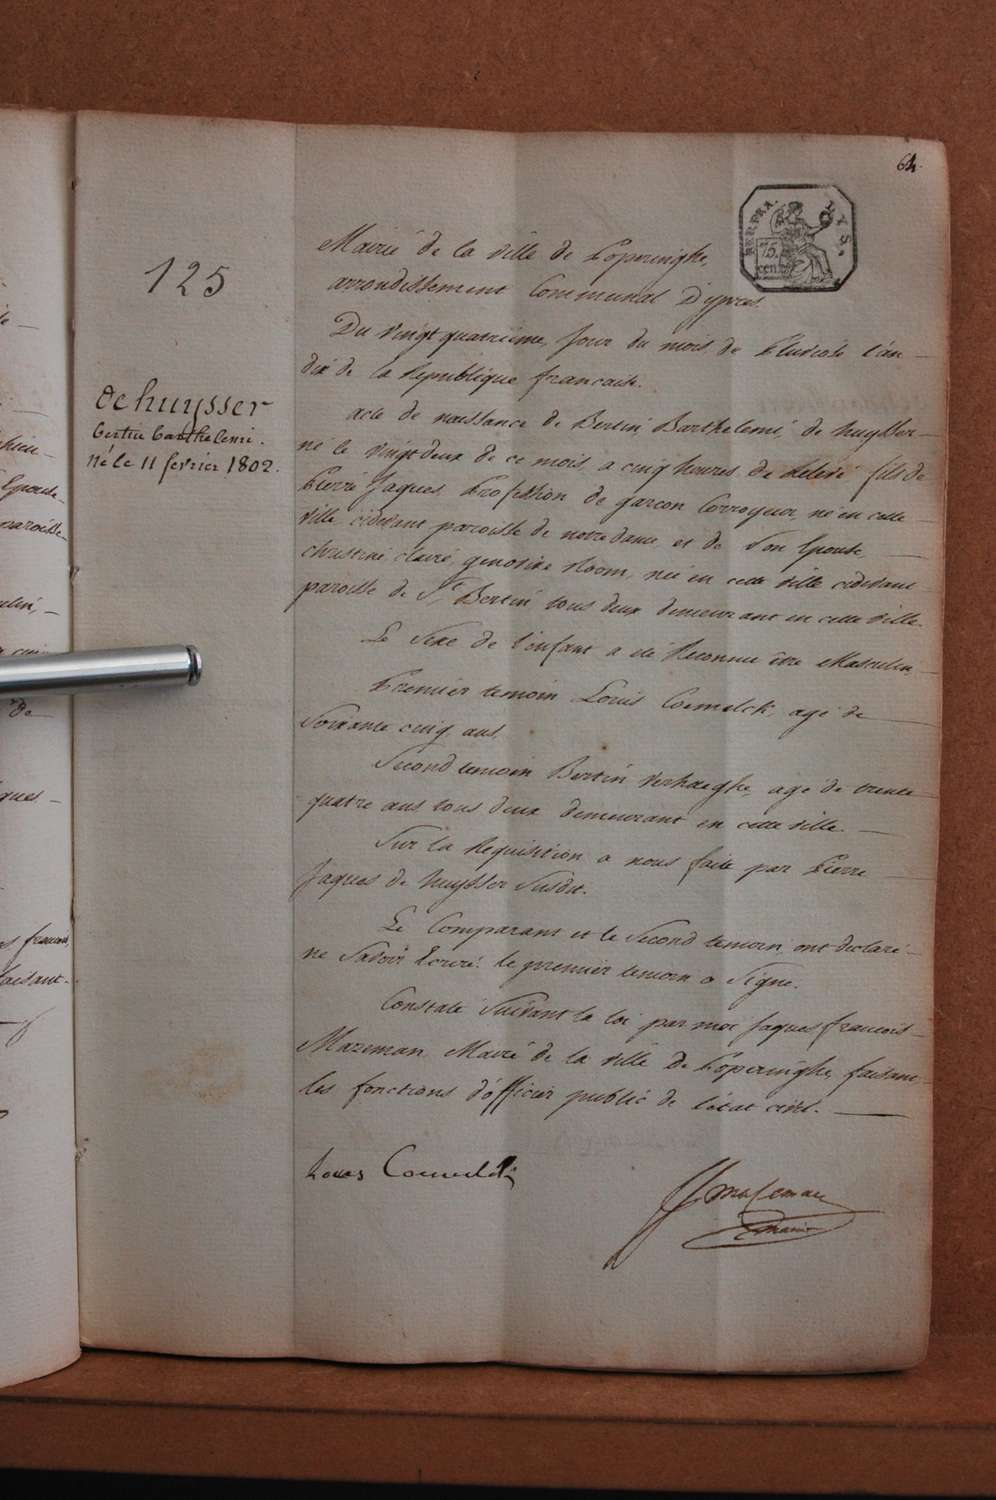 64.
REP. FRA.
75.
cent.
125
Mairié de la ville de Poperinghe,
arrondissement Communal D'ypres.
Du vingt quatriême, Jour du mois, de Pluviose l'an —
dix de la Republique francaise.
dehuysser
bertin barthelemi.
né le 11 fevrier 1802.
acte de naissance de Bertin, Barthelemi, de huysser —
né le vingt deux de ce mois, a cinq heures de Relevé fils de
Pierre Jaques, Profession de garcon Corroyeur, né en cette —
ville cidevant paroisse de notre dame, et de Son Epouse, —
christine, claire, genovive room, née en cette ville cidevant
paroisse de St. Bertin, tous deux demeurant en cette ville.
Le Sexe de l'enfant a eté Reconnu être Masculin,
Premier temoin Louis Coemelck, agé de —
Soixante cinq ans,
Second temoin Bertin Verhaeghe, agé de trente
quatre ans tous deux demeurant en cette ville. —
Sur la Requisition a nous faite par Pierre —
Jaques de huysser Susdit.
Le Comparant et le Second temoin, ont declaré —
ne Savoir Ecrire. le premier temoin a Signe.
Constaté Suivant la loi par moi Jaques francois —
Mazeman, Mairé de la ville de Poperinghe, faisant —
les fonctions d'officier public de l'état civil. —
Louis
JJ mazeman
maire